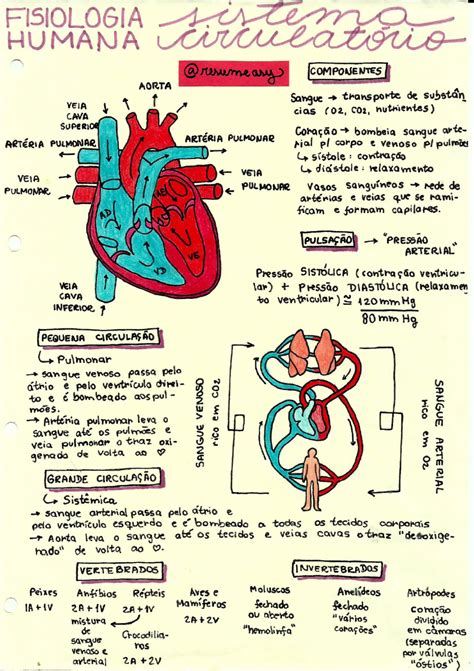 FISIOLOGIA
HUMANA
sistema
circulatório
@resumeasy
COMPONENTES
Sangue → transporte de substân
cias (O2, CO2, nutrientes)
Coração → bombeia sangue arte-
rial p/ corpo e venoso p/ pulmões
↳ sístole: contração
↳ diástole: relaxamento
Vasos sanguíneos → rede de
artérias e veias que se rami-
ficam e formam capilares.
AORTA
VEIA
CAVA
SUPERIOR
ARTÉRIA PULMONAR
ARTÉRIA PULMONAR
VEIA
PULMONAR
VEIA
PULMONAR
AD
AE
VD
VE
VEIA
CAVA
INFERIOR
PULSAÇÃO → "PRESSÃO
ARTERIAL"
Pressão SISTÓLICA (contração ventricu-
lar) + Pressão DIASTÓLICA (relaxamen
to ventricular) ≅ 120 mm Hg
80 mm Hg
PEQUENA CIRCULAÇÃO
↳ Pulmonar
→ sangue venoso passa pelo
átrio e pelo ventrículo direi-
to e é bombeado aos pul-
mões.
→ Artéria pulmonar leva o
sangue até os pulmões e
veia pulmonar o traz oxi-
genado de volta ao ♡
SANGUE VENOSO
rico em CO2
SANGUE ARTERIAL
rico em O2
GRANDE CIRCULAÇÃO
↳ Sistêmica
→ sangue arterial passa pelo átrio e
pelo ventrículo esquerdo e é bombeado a todas os tecidos corporais
→ Aorta leva o sangue até os tecidos e veias cavas o traz "desoxige-
nado" de volta ao ♡.
VERTEBRADOS
Peixes
1A + 1V
Anfíbios
2A + 1V
mistura
de
sangue
venoso e
arterial
Répteis
2A + 1V
Crocodilia-
nos
2A + 2V
Aves e
Mamíferos
2A + 2V
INVERTEBRADOS
Moluscos
fechado
ou aberto
"hemolinfa"
Anelídeos
fechado
"vários
corações"
Artrópodes
coração
dividido
em câmaras
(separadas
por válvulas
"óstios")